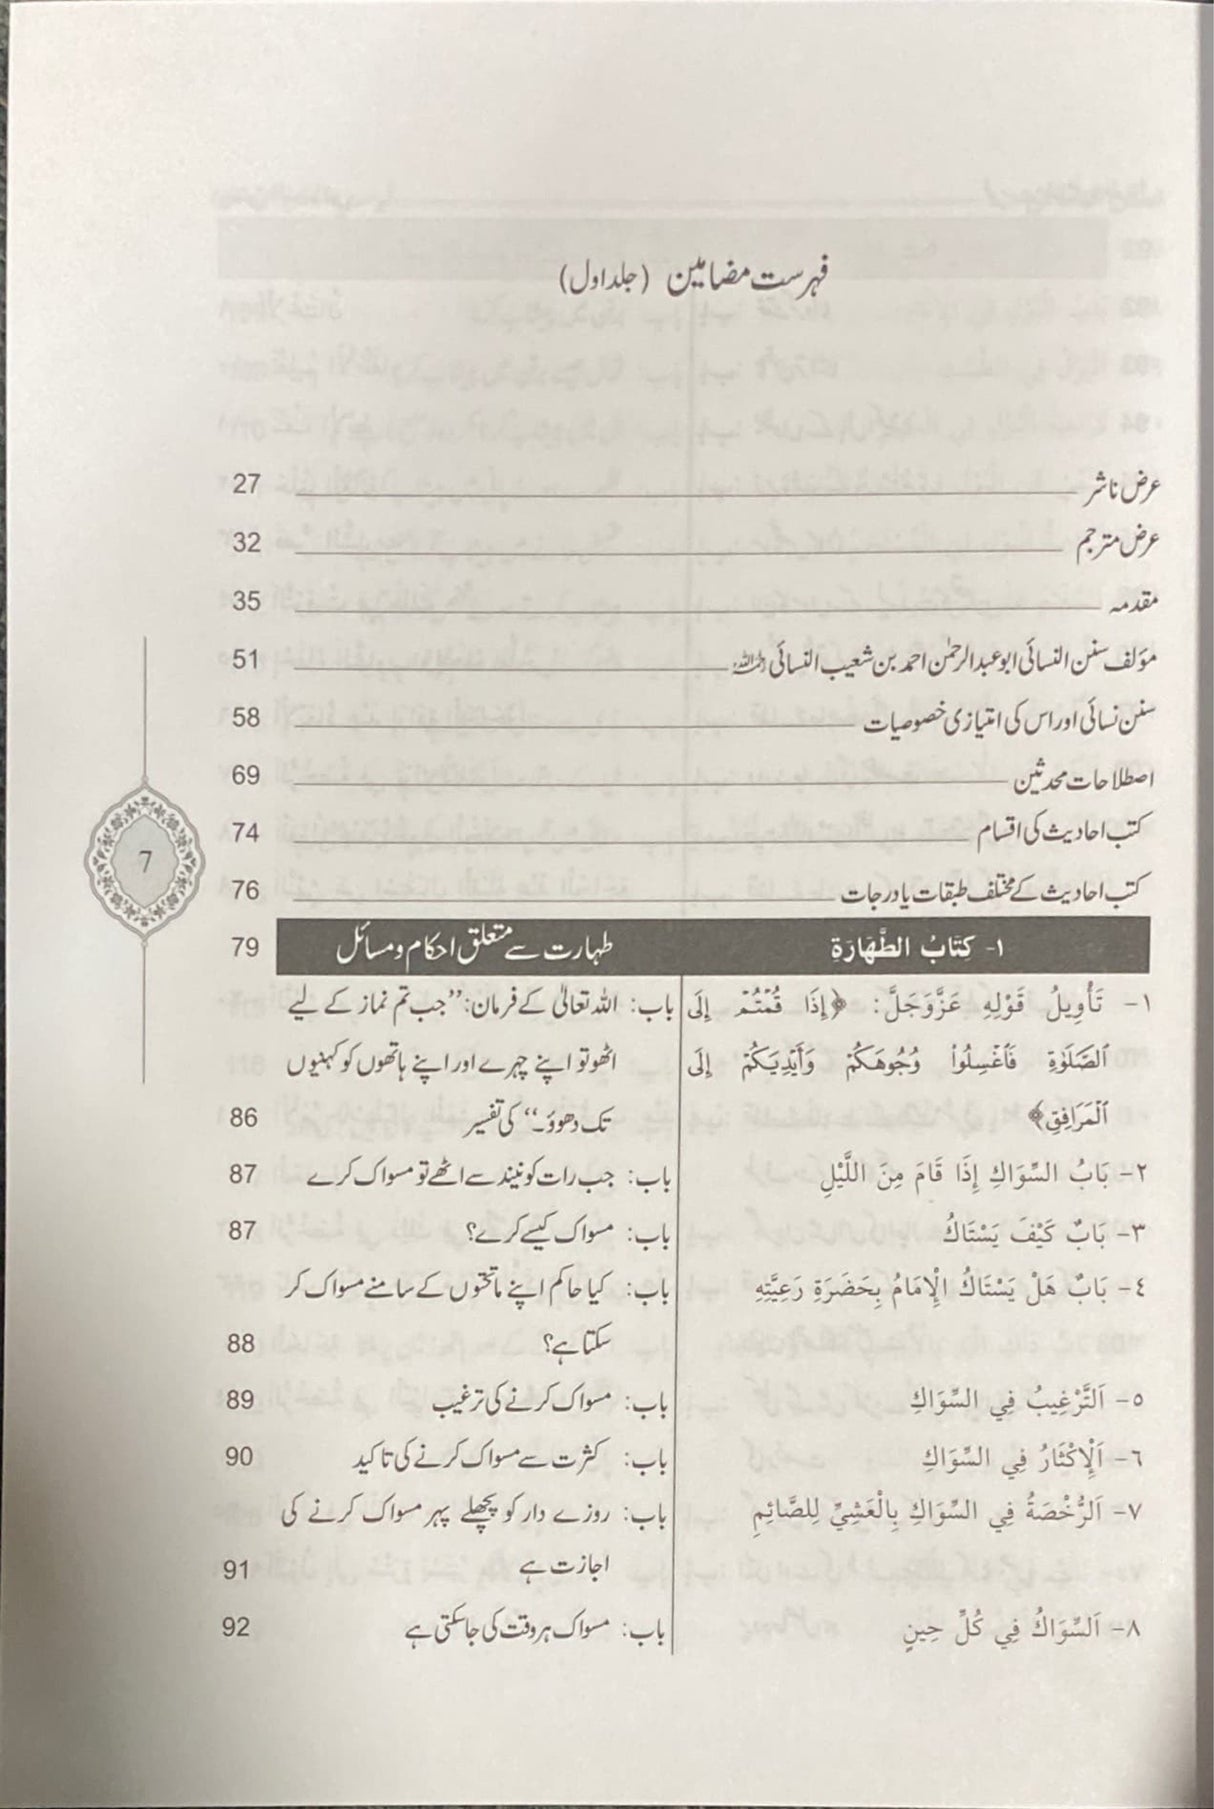 فہرست مضامین (جلد اول)
عرض ناشر 27
عرض مترجم 32
مقدمہ 35
مؤلف سنن النسائی ابو عبدالرحمٰن احمد بن شعیب النسائی رحمہ اللہ 51
سنن نسائی اور اس کی امتیازی خصوصیات 58
اصطلاحات محدثین 69
کتب احادیث کی اقسام 74
کتب احادیث کے مختلف طبقات یا درجات 76
7
١- كِتَابُ الطَّهَارَةِ طہارت سے متعلق احکام و مسائل 79
١- تَأْوِيلُ قَوْلِهِ عَزَّوَجَلَّ: ﴿إِذَا قُمْتُمْ إِلَى باب: اللہ تعالیٰ کے فرمان: ”جب تم نماز کے لیے
ٱلصَّلَوٰةِ فَٱغْسِلُوا۟ وُجُوهَكُمْ وَأَيْدِيَكُمْ إِلَى اٹھو تو اپنے چہرے اور اپنے ہاتھوں کو کہنیوں
ٱلْمَرَافِقِ﴾ تک دھوؤ۔“ کی تفسیر 86
٢- بَابُ السِّوَاكِ إِذَا قَامَ مِنَ اللَّيْلِ باب: جب رات کو نیند سے اٹھے تو مسواک کرے 87
٣- بَابٌ كَيْفَ يَسْتَاكُ باب: مسواک کیسے کرے؟ 87
٤- بَابٌ هَلْ يَسْتَاكُ الْإِمَامُ بِحَضَرَةِ رَعِيَّتِهِ باب: کیا حاکم اپنے ماتحتوں کے سامنے مسواک کر
سکتا ہے؟ 88
٥- اَلتَّرْغِيبُ فِي السِّوَاكِ باب: مسواک کرنے کی ترغیب 89
٦- اَلْإِكْثَارُ فِي السِّوَاكِ باب: کثرت سے مسواک کرنے کی تاکید 90
٧- اَلرُّخْصَةُ فِي السِّوَاكِ بِالْعَشِيِّ لِلصَّائِمِ باب: روزے دار کو پچھلے پہر مسواک کرنے کی
اجازت ہے 91
٨- اَلسِّوَاكُ فِي كُلِّ حِينٍ باب: مسواک ہر وقت کی جا سکتی ہے 92